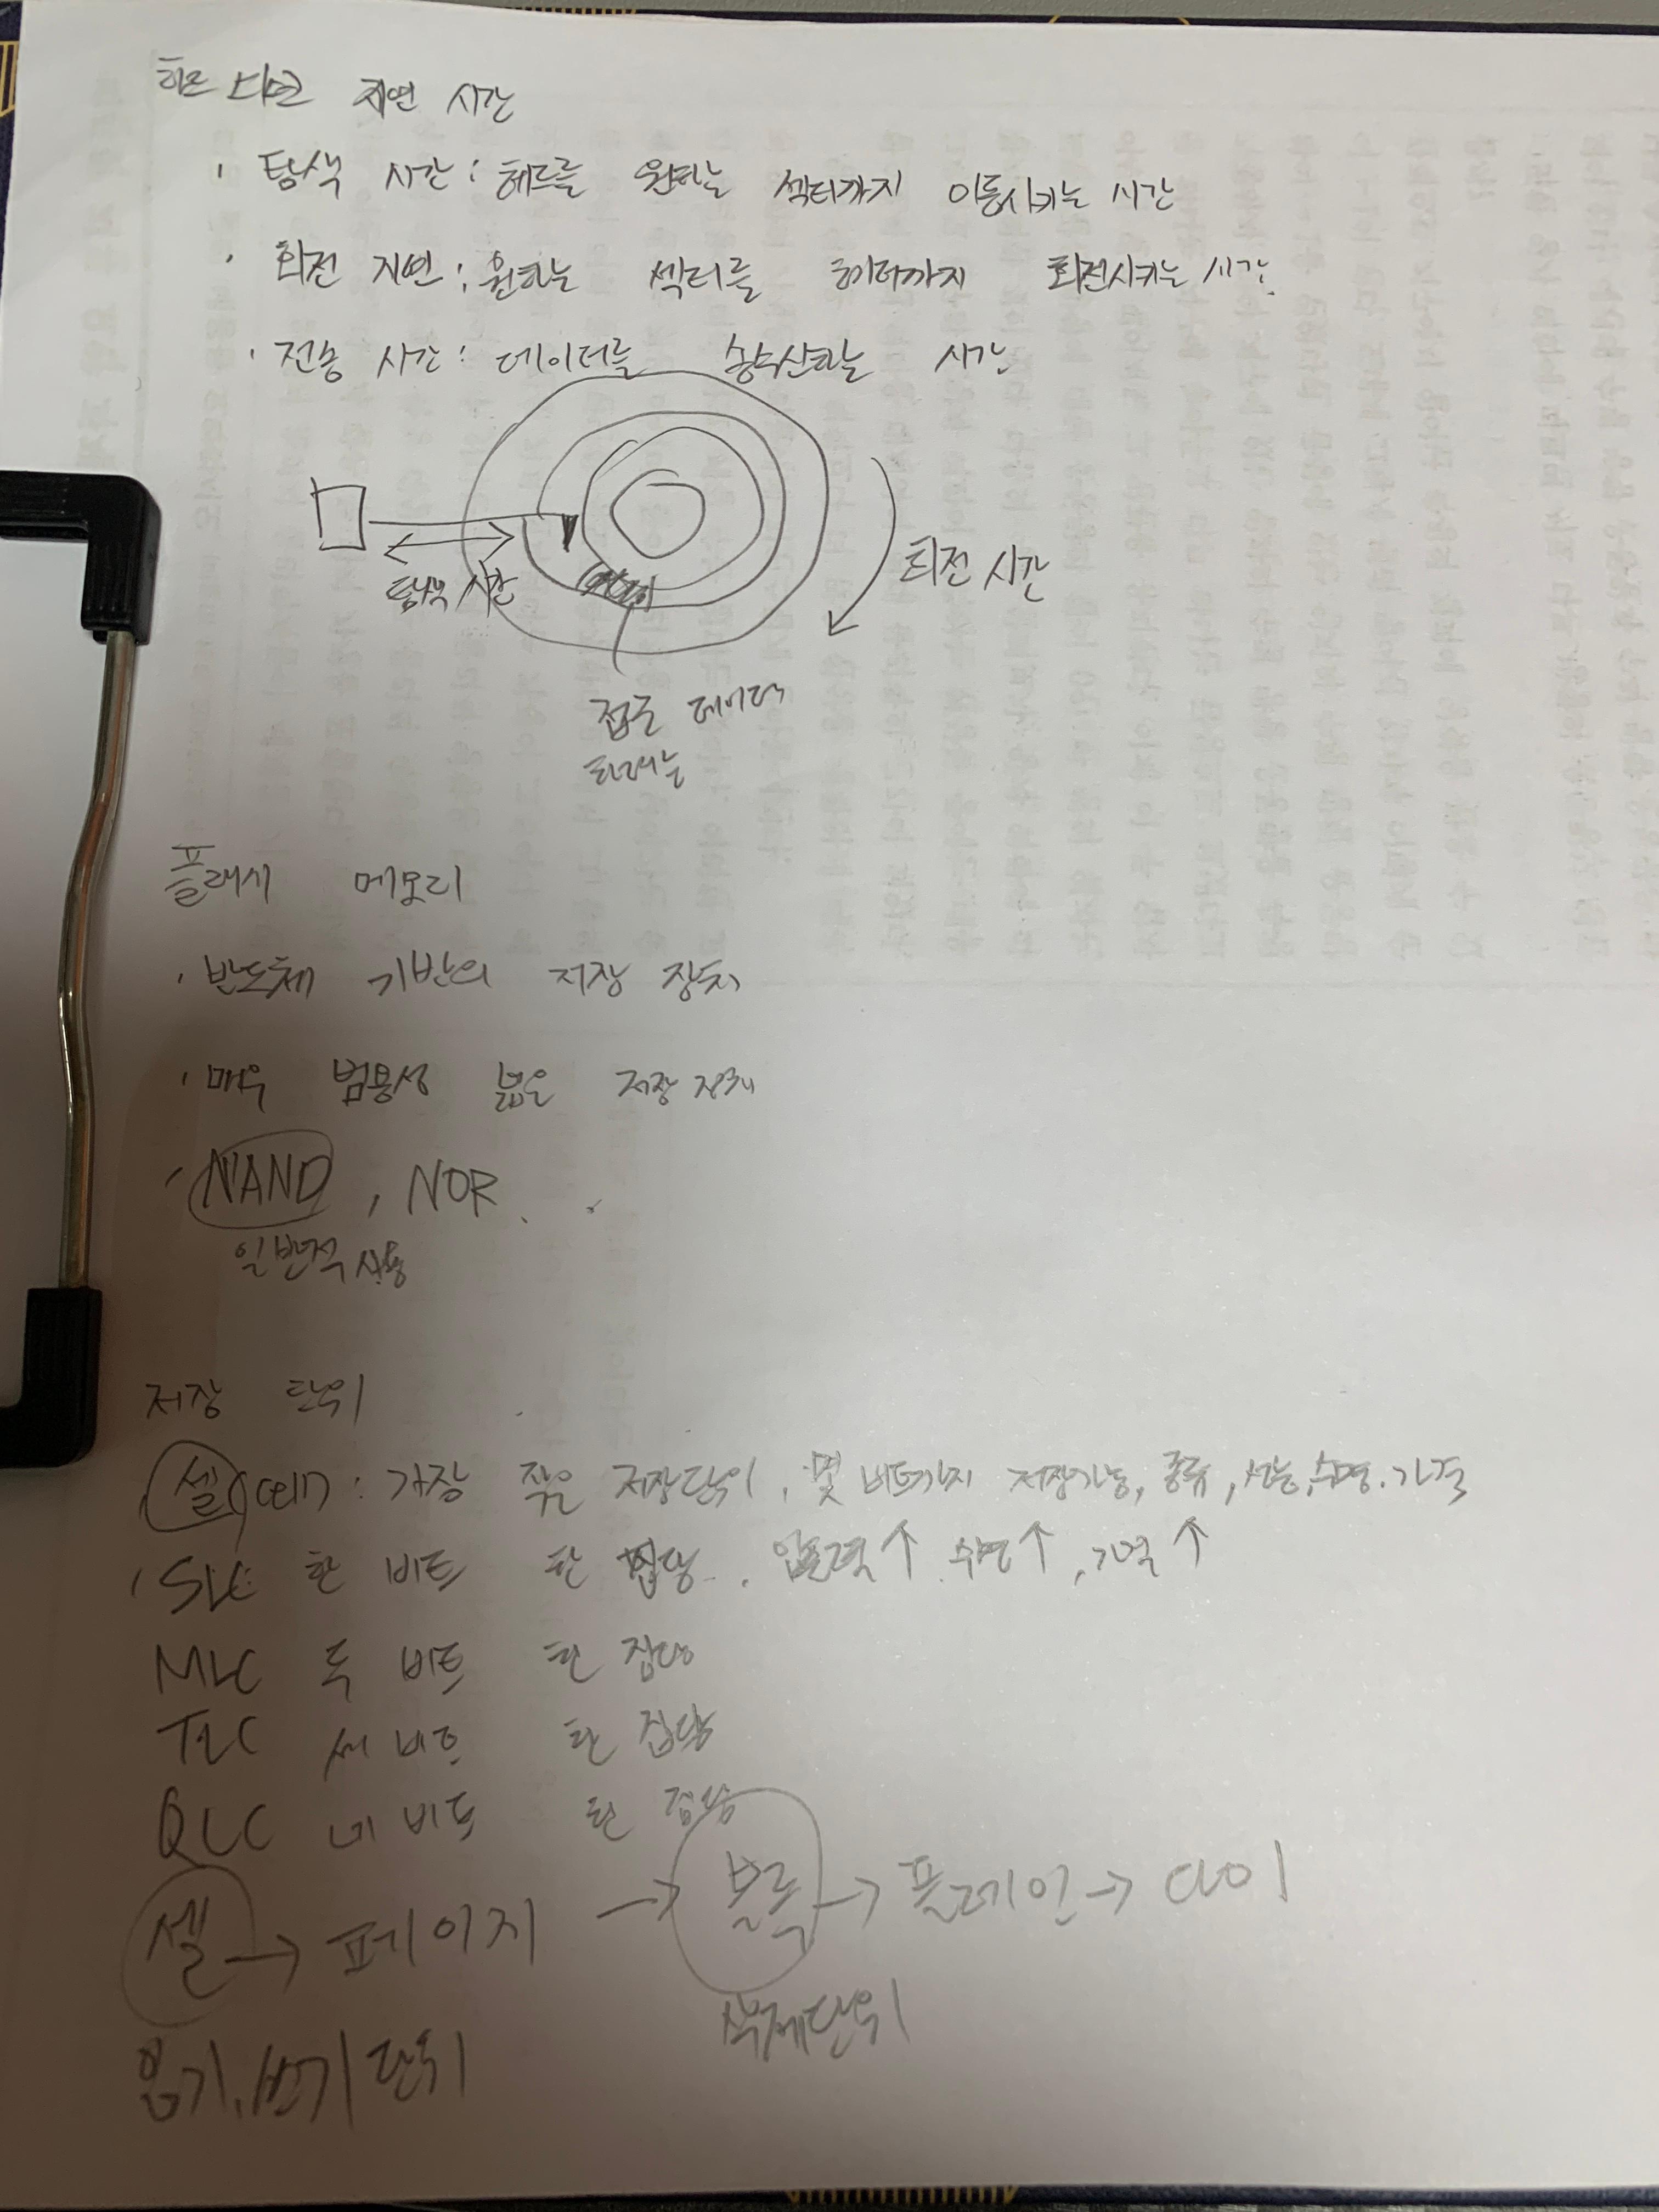 하드 디스크 지연 시간
· 탐색 시간 : 헤드를 원하는 섹터까지 이동시키는 시간
· 회전 지연 : 원하는 섹터를 헤더까지 회전시키는 시간
· 전송 시간 : 데이터를 송수신하는 시간
탐색 시간
회전 시간
접근 데이터
하려는
플래시 메모리
· 반도체 기반의 저장 장치
· 매우 범용성 넓은 저장 장치
· NAND , NOR
일반적 사용
저장 단위
셀(cell) : 가장 작은 저장단위, 몇 비트까지 저장가능, 종류, 성능, 수명, 가격
· SLC 한 비트 한 집당 . 입출력↑ 수명↑, 가격↑
MLC 두 비트 한 집당
TLC 세 비트 한 집당
QLC 네 비트 한 집당
셀 → 페이지 → 블록 → 플레인 → 다이
읽기, 쓰기 단위
삭제단위